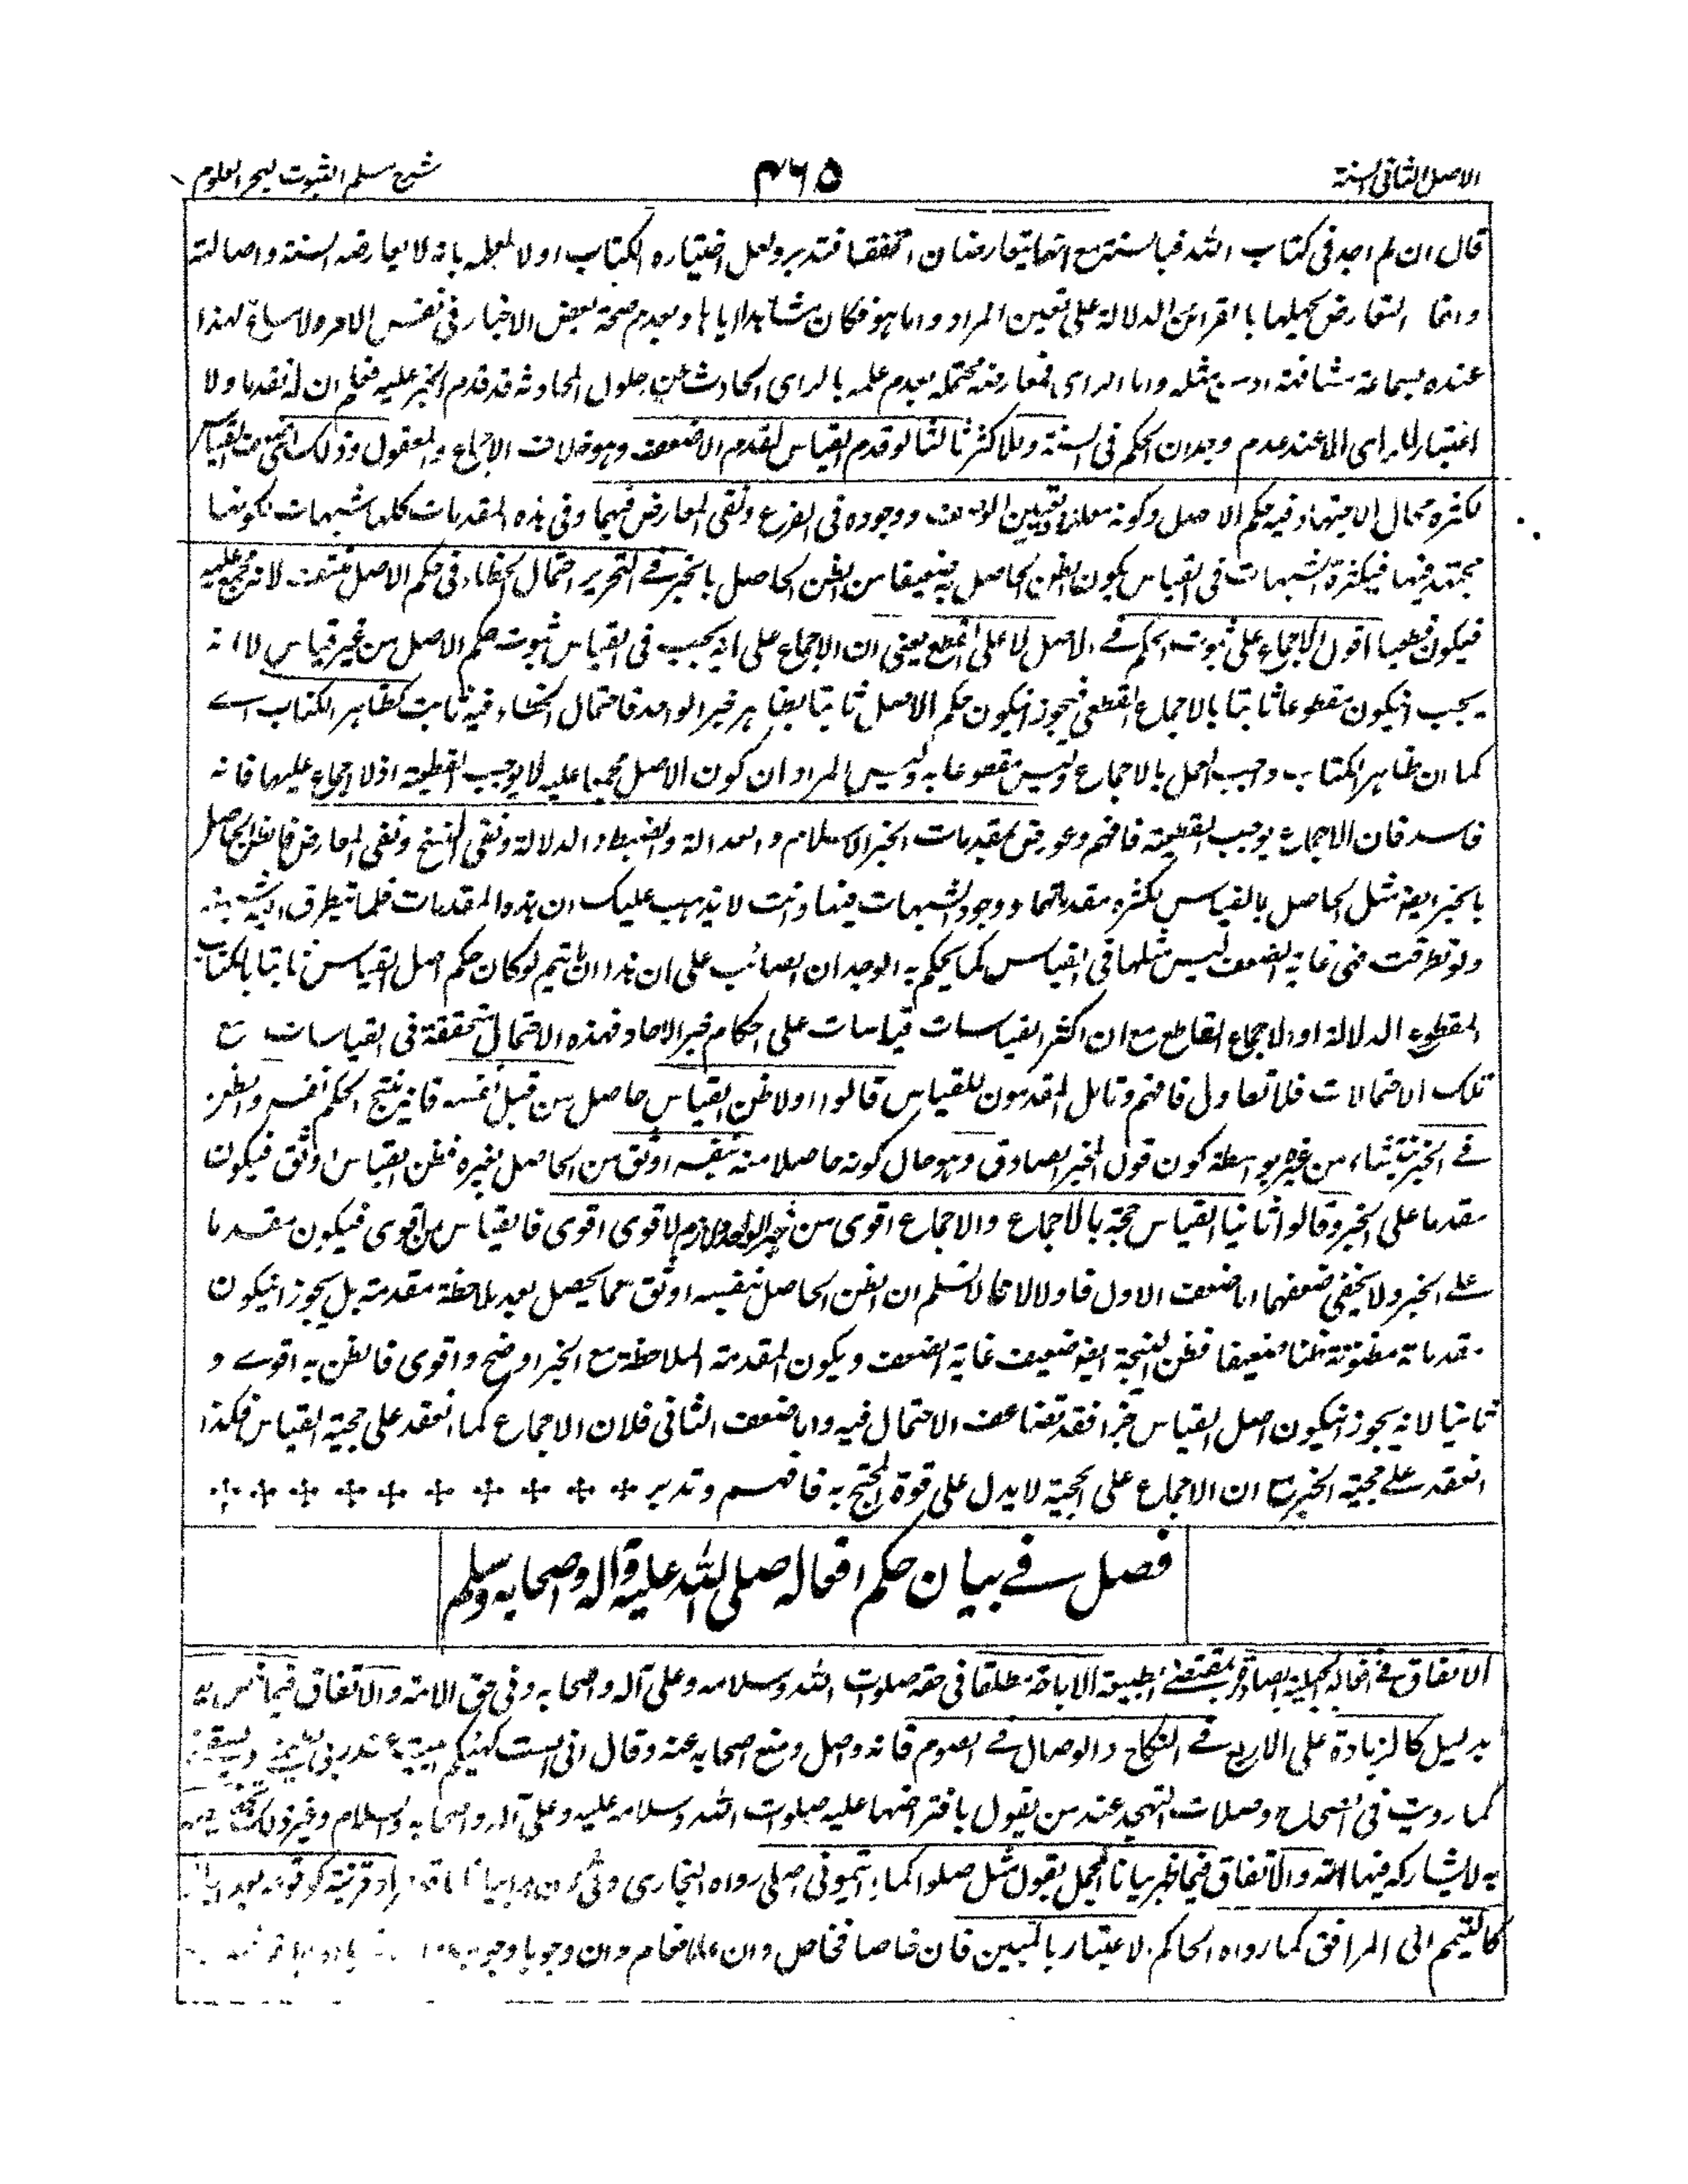 الاصل الثانی السنة
٤٦٥
شرح مسلم الثبوت لبحر العلوم
قال ان لم اجد فی کتاب الله فبالسنة مع انهما یتعارضان اتفقا فتدبر ولعل اختیاره الکتاب اولا لعلمه بانه لا یعارضه السنة واصالته
وانما التعارض بجهلها بالقرائن الدلالة علی تعیین المراد واما هو فکان مشاهدا ایاها وبعدم صحة بعض الاخبار فی نفس الامر ولا مساغ لهذا
عنده بسماعه مشافهة او سمع مثله واما الرای فمعارضته محتمله بعدم علمه بالرای الحادث حلول الحادثة قد قدم الخبر علیه فعلم ان له تقدما ولا
اعتبار للرای الا عند عدم وجدان الحکم فی السنة وللاکثر ثالثا لو قدم القیاس لقدم الاضعف وهو خلاف الاجماع والمعقول وذلک القیاس
لکثرة محال الاجتهاد فیه حکم الاصل وکونه معللا وتعیین الوصف ووجوده فی الفرع ونفی المعارض فیهما وفی هذه المقدمات کلها شبهات لکونها
مجتهد فیها فبکثرة الشبهات فی القیاس یکون الظن الحاصل به ضعیفا من الظن الحاصل بالخبر فی التحریر احتمال الخطاء فی حکم الاصل منتف لانه مجمع علیه
فیکون قطعیا اقول الاجماع علی ثبوت الحکم فے الاصل لا علی القطع یعنی ان الاجماع علی انه یجب فی القیاس ثبوت حکم الاصل من غیر قیاس لا انه
یجب ان یکون مقطوعا ثابتا بالاجماع القطعی فیجوز ان یکون حکم الاصل ثابتا بظاهر خبر الواحد فاحتمال الخطاء فیه ثابت کظاهر الکتاب اے
کما ان ظاهر الکتاب واجب العمل بالاجماع ولیس مقطوعا به ولیس المراد ان کون الاصل مجمعا علیه لا یوجب القطعیة اذ لا اجماع علیها فانه
فاسد فان الاجماع یوجب القطعیة فافهم وعورض بمقدمات الخبر الاسلام والعدالة والضبط والدلالة ونفی النسخ ونفی المعارض فالظن الحاصل
بالخبر ایضا مثل الحاصل بالقیاس لکثرة مقدماتهما ووجود الشبهات فیها وانت لا یذهب علیک ان هذه المقدمات قلما یتطرق الیه شبهة
ولو تطرقت فهی غایة الضعف لیس مثلها فی القیاس کما یحکم به الوجدان الصائب علی ان هذا انما یتم لو کان حکم اصل القیاس ثابتا بالکتاب
المقطوع الدلالة او الاجماع القاطع مع ان اکثر القیاسات قیاسات علی احکام خبر الاحاد فهذه الاحتمال متحققة فی القیاسات مع
تلک الاحتمالات فلا تعاول فافهم وتامل المقدمون للقیاس قالوا اولا ظن القیاس حاصل من قبل نفسه فانه ینتج الحکم نفسه والظن
فے الخبر ینشاء من غیره بواسطة کون قول المخبر الصادق وهو حال کونه حاصلا منه بنفسه اوثق من الحاصل بغیره فظن القیاس اوثق فیکون
مقدما علی الخبر وقالوا ثانیا القیاس حجة بالاجماع والاجماع اقوی من خبر الواحد لازم الاقوی اقوی فالقیاس اقوی فیکون مقدما
علے الخبر ولا یخفی ضعفهما اما ضعف الاول فاولا لانا لا نسلم ان الظن الحاصل بنفسه اوثق مما یحصل بعد ملاحظة مقدمة بل یجوز ان یکون
مقدماته مظنونة ظنا ضعیفا فظن النتیجة ایضا ضعیف غایة الضعف ویکون المقدمة الملاحظة مع الخبر اوضح واقوی فالظن به اقوے و
ثانیا لانه یجوز ان یکون اصل القیاس خبرا فقد تضاعف الاحتمال فیه واما ضعف الثانی فلان الاجماع کما انعقد علی حجیة القیاس فکذا
انعقد علے حجیة الخبر مع ان الاجماع علی الحجیة لا یدل علی قوة المحتج به فافهم وتدبر
فصل فے بیان حکم افعاله صلی الله علیه وآله واصحابه وسلم
الاتفاق فے افعاله الجبلیة الصادرة بمقتضے الطبیعة الاباحة مطلقا فی حقه صلوات الله وسلامه وعلی آله واصحابه وفی حق الامة والاتفاق فیما خص به
بدلیل کالزیادة علی الاربع فے النکاح والوصال فے الصوم فانه واصل ومنع اصحابه عنه وقال انی لست کهیئتکم ابیت عند ربی یطعمنی ویسقینی
کما رویت فی الصحاح وصلات التهجد عند من یقول بافتراضها علیه صلوات الله وسلامه علیه وعلی آله واصحابه والسلام وغیر ذلک
به لا یشارکه فیها الامة والاتفاق فیما ظهر بیانا لمجمل بقول مثل صلوا کما رایتمونی اصلی رواه البخاری او قرینة کوقوعه بعد
کالتیمم الی المرافق کما رواه الحاکم الاعتبار بالمبین فان خاصا فخاص وان عاما فعام وان وجوبا